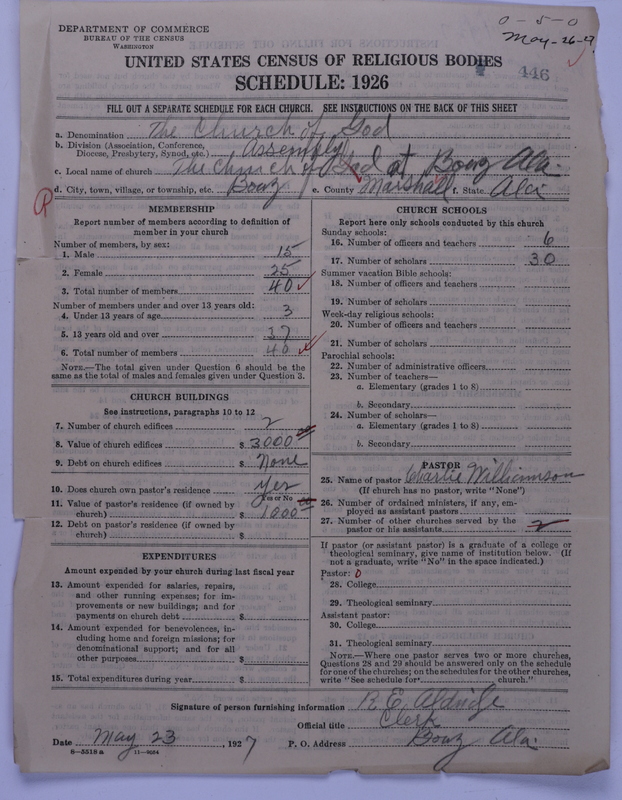 DEPARTMENT OF COMMERCE
BUREAU OF THE CENSUS
WASHINGTON
0-5-0
May-26-9
446
UNITED STATES CENSUS OF RELIGIOUS BODIES
SCHEDULE: 1926
FILL OUT A SEPARATE SCHEDULE FOR EACH CHURCH. SEE INSTRUCTIONS ON THE BACK OF THIS SHEET
a. Denomination The Church of God
b. Division (Association, Conference, Diocese, Presbytery, Synod, etc.) Assembly
c. Local name of church The Church of God at Boaz Ala
d. City, town, village, or township, etc. Boaz e. County Marshall f. State Ala
MEMBERSHIP
Report number of members according to definition of member in your church
Number of members, by sex:
1. Male 15
2. Female 25
3. Total number of members 40
Number of members under and over 13 years old:
4. Under 13 years of age 3
5. 13 years old and over 37
6. Total number of members 40
NOTE.—The total given under Question 6 should be the same as the total of males and females given under Question 3.
CHURCH BUILDINGS
See instructions, paragraphs 10 to 12
7. Number of church edifices 2
8. Value of church edifices $ 3000
9. Debt on church edifices $ None
10. Does church own pastor's residence Yes
Yes or No
11. Value of pastor's residence (if owned by church) $ 1000
12. Debt on pastor's residence (if owned by church) $
EXPENDITURES
Amount expended by your church during last fiscal year
13. Amount expended for salaries, repairs, and other running expenses; for improvements or new buildings; and for payments on church debt $
14. Amount expended for benevolences, including home and foreign missions; for denominational support; and for all other purposes $
15. Total expenditures during year $
CHURCH SCHOOLS
Report here only schools conducted by this church
Sunday schools:
16. Number of officers and teachers 6
17. Number of scholars 30
Summer vacation Bible schools:
18. Number of officers and teachers
19. Number of scholars
Week-day religious schools:
20. Number of officers and teachers
21. Number of scholars
Parochial schools:
22. Number of administrative officers
23. Number of teachers—
a. Elementary (grades 1 to 8)
b. Secondary
24. Number of scholars—
a. Elementary (grades 1 to 8)
b. Secondary
PASTOR
25. Name of pastor Charlie Williamson
(If church has no pastor, write "None")
26. Number of ordained ministers, if any, employed as assistant pastors
27. Number of other churches served by the pastor or his assistants 2
If pastor (or assistant pastor) is a graduate of a college or theological seminary, give name of institution below. (If not a graduate, write "No" in the space indicated.)
Pastor: 0
28. College
29. Theological seminary
Assistant pastor:
30. College
31. Theological seminary
NOTE.—Where one pastor serves two or more churches, Questions 28 and 29 should be answered only on the schedule for one of the churches; on the schedules for the other churches, write "See schedule for church."
Signature of person furnishing information R. E. Aldridge
Official title Clerk
Date May 23, 1927 P. O. Address Boaz Ala
8-5518 a 11-9054